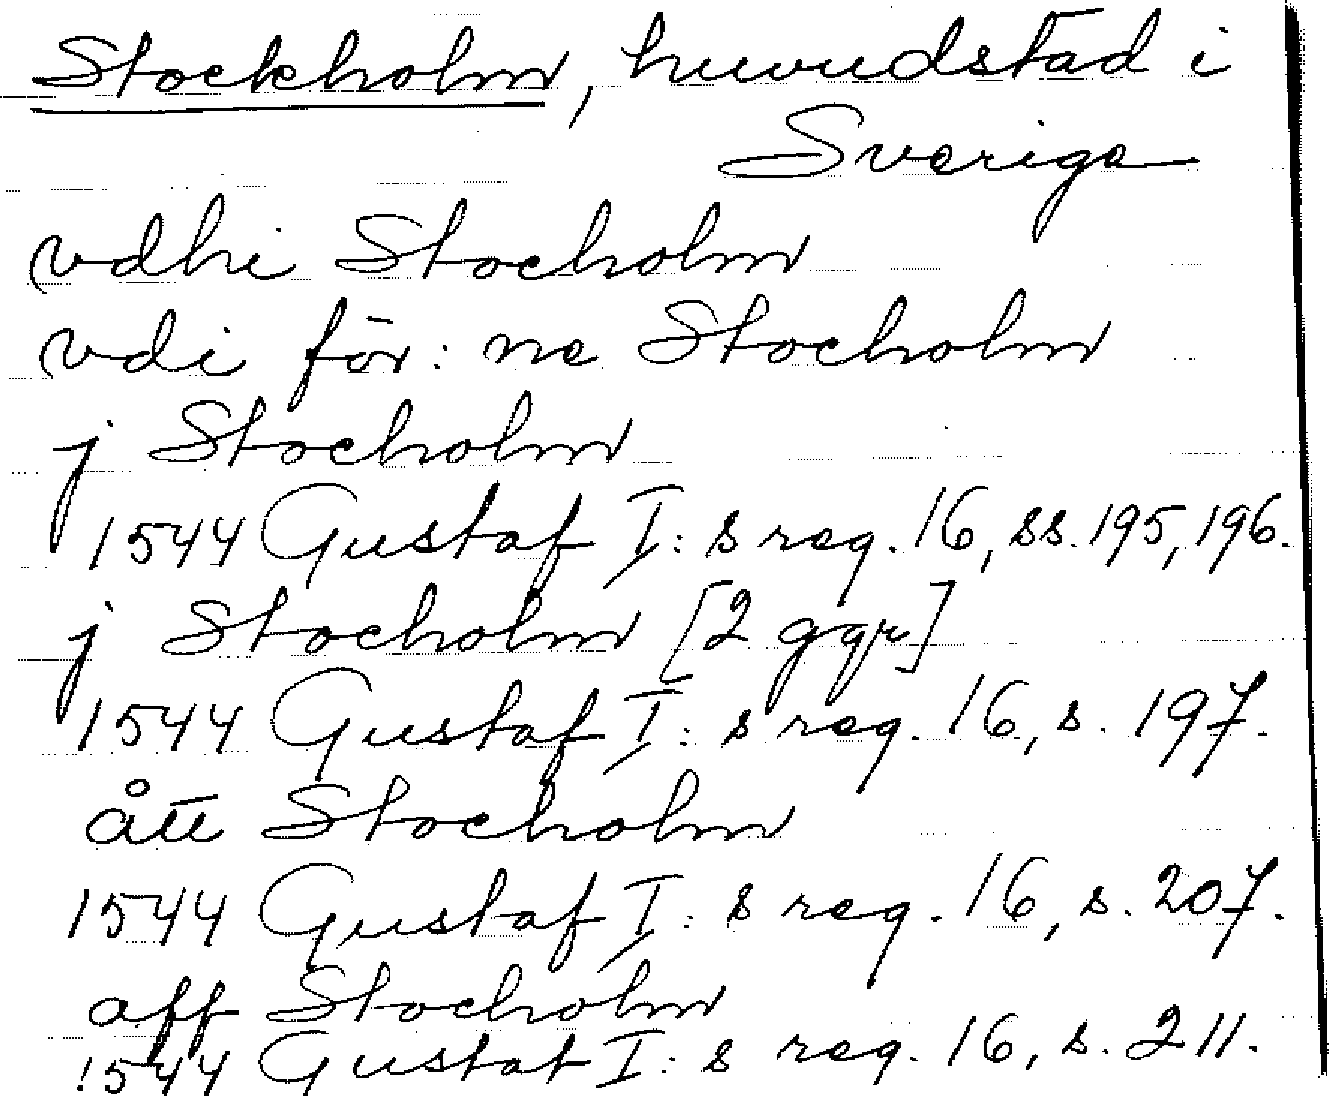 Stockholm, huvudstad i
Sverige
vdhi Stocholm
vdi för: ne Stocholm
j Stocholm
1544 Gustaf I: s reg. 16, ss. 195, 196.
j Stocholm [2 ggr]
1544 Gustaf I: s reg. 16, s. 197.
ått Stocholm
1544 Gustaf I: s reg. 16, s. 207.
aff Stocholm
1544 Gustaf I: s reg. 16, s. 211.